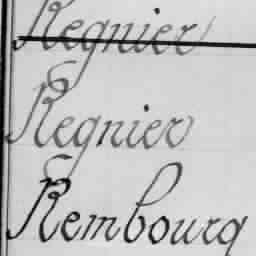 Regnier
Regnier
Rembourg